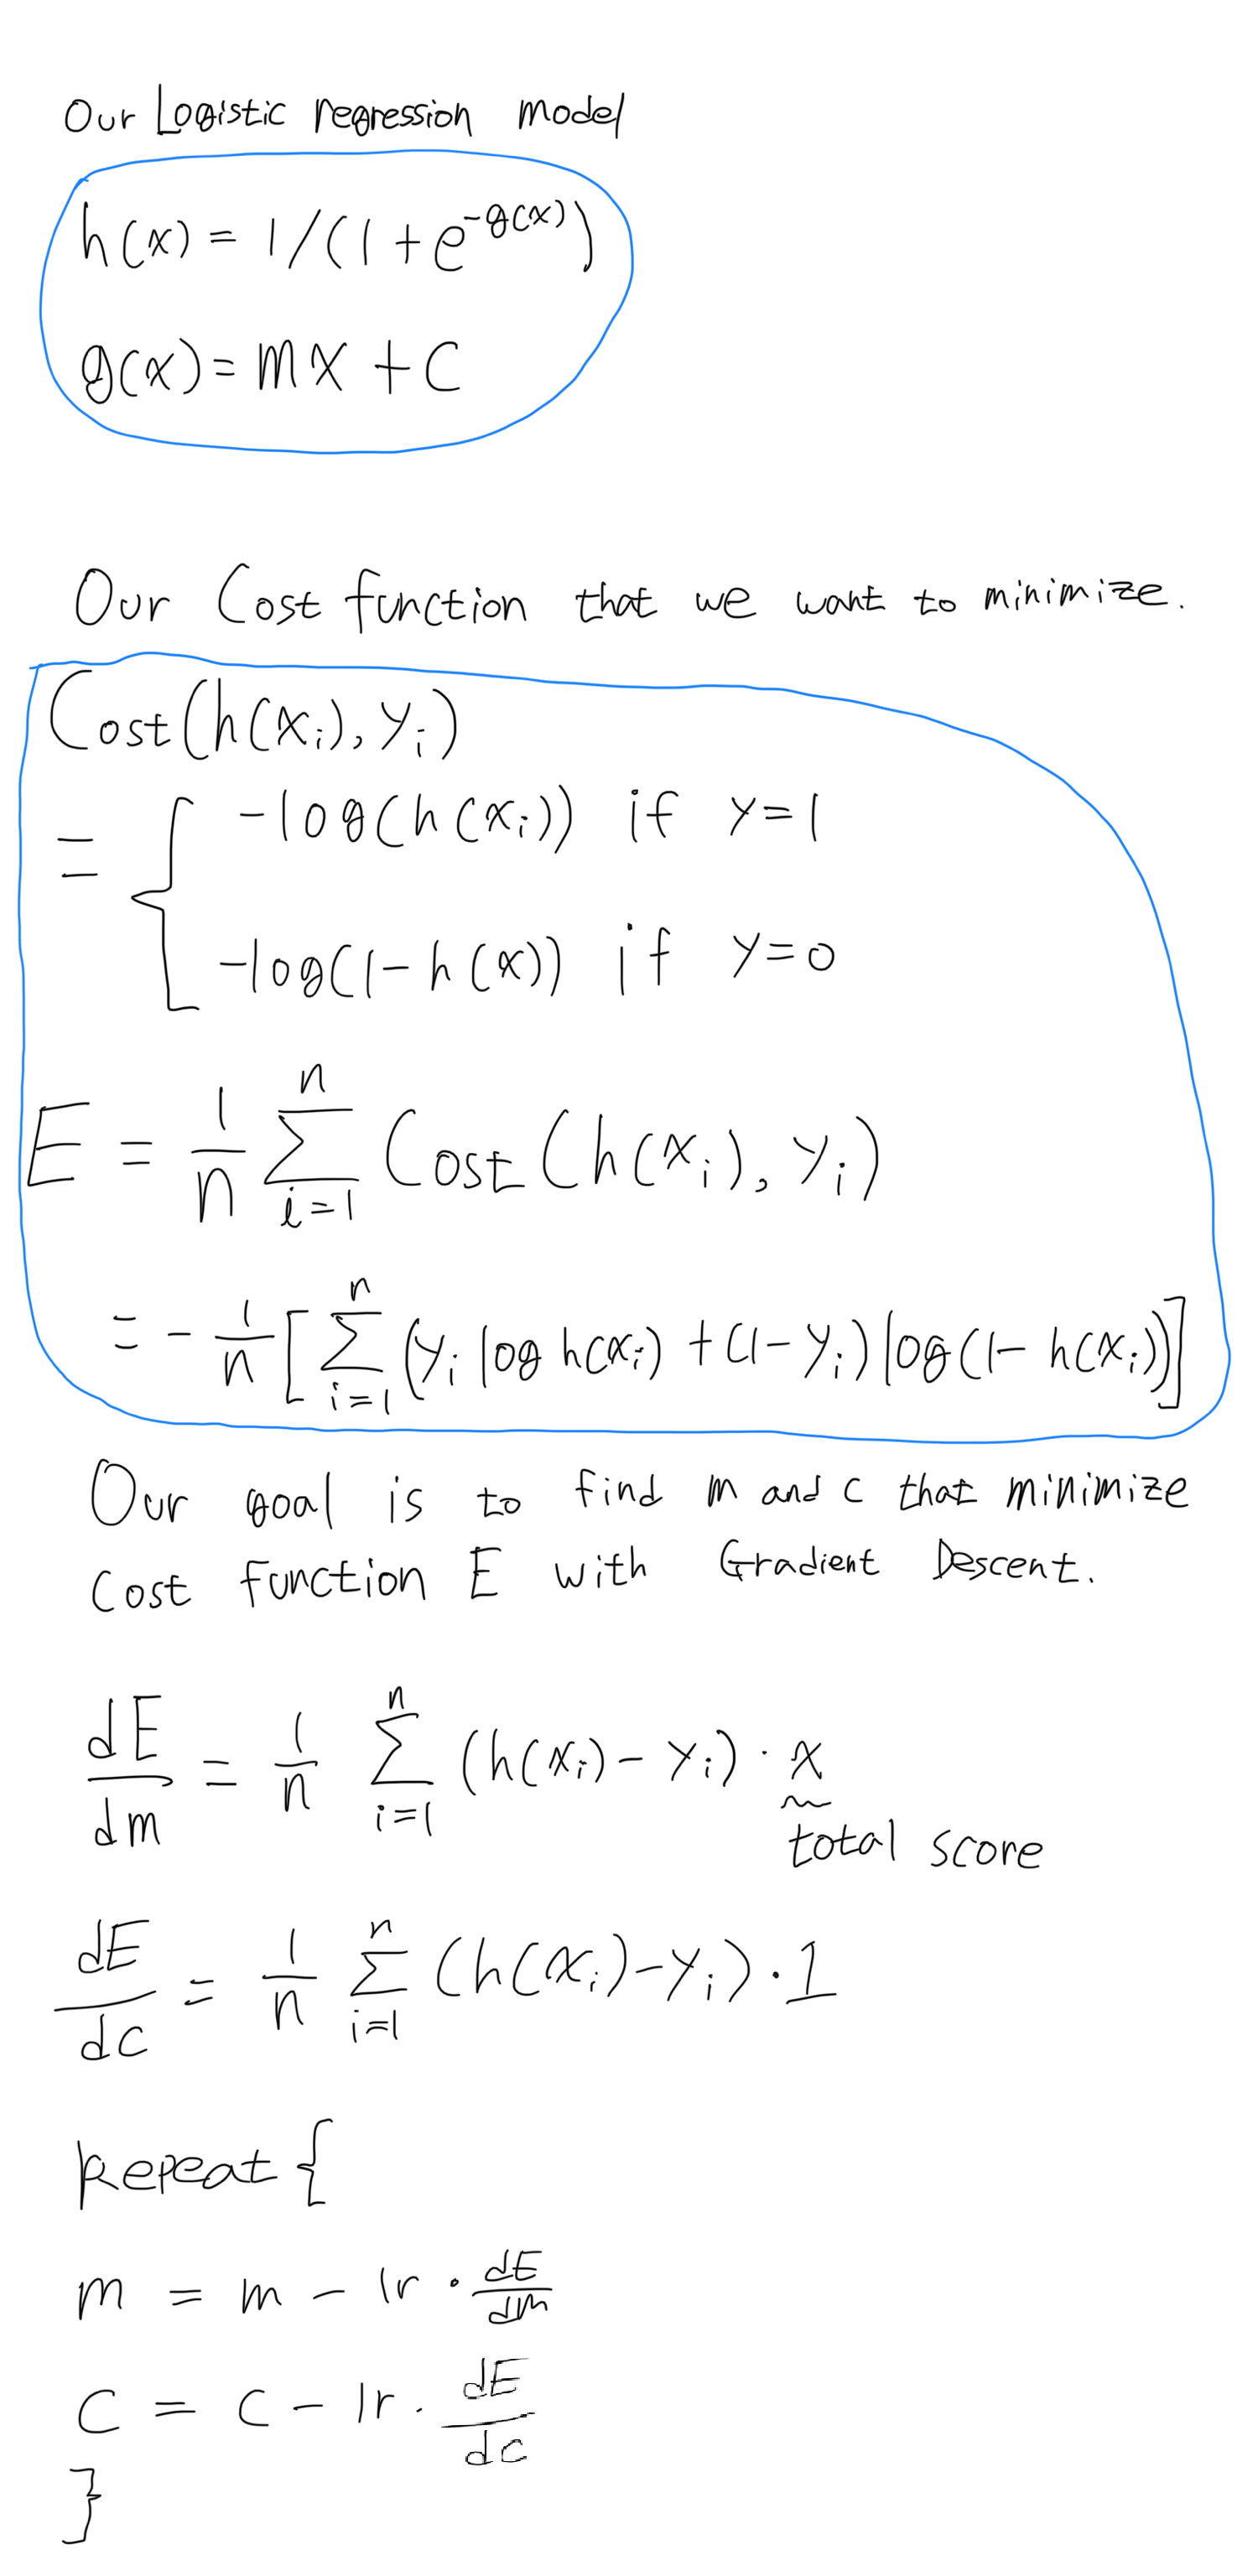 Our Logistic regression model
h(x) = 1/(1+e^{-g(x)})
g(x) = mx + c
Our Cost function that we want to minimize.
Cost(h(xᵢ), yᵢ)
= { -log(h(xᵢ)) if y=1
-log(1-h(x)) if y=0
E = 1/n Σ_{i=1}^{n} Cost(h(xᵢ), yᵢ)
= - 1/n [ Σ_{i=1}^{n} (yᵢ log h(xᵢ) + (1-yᵢ) log(1-h(xᵢ))) ]
Our goal is to find m and c that minimize
cost function E with Gradient Descent.
dE/dm = 1/n Σ_{i=1}^{n} (h(xᵢ) - yᵢ) · x
total score
dE/dc = 1/n Σ_{i=1}^{n} (h(xᵢ) - yᵢ) · 1
Repeat {
m = m - lr · dE/dm
c = c - lr · dE/dc
}